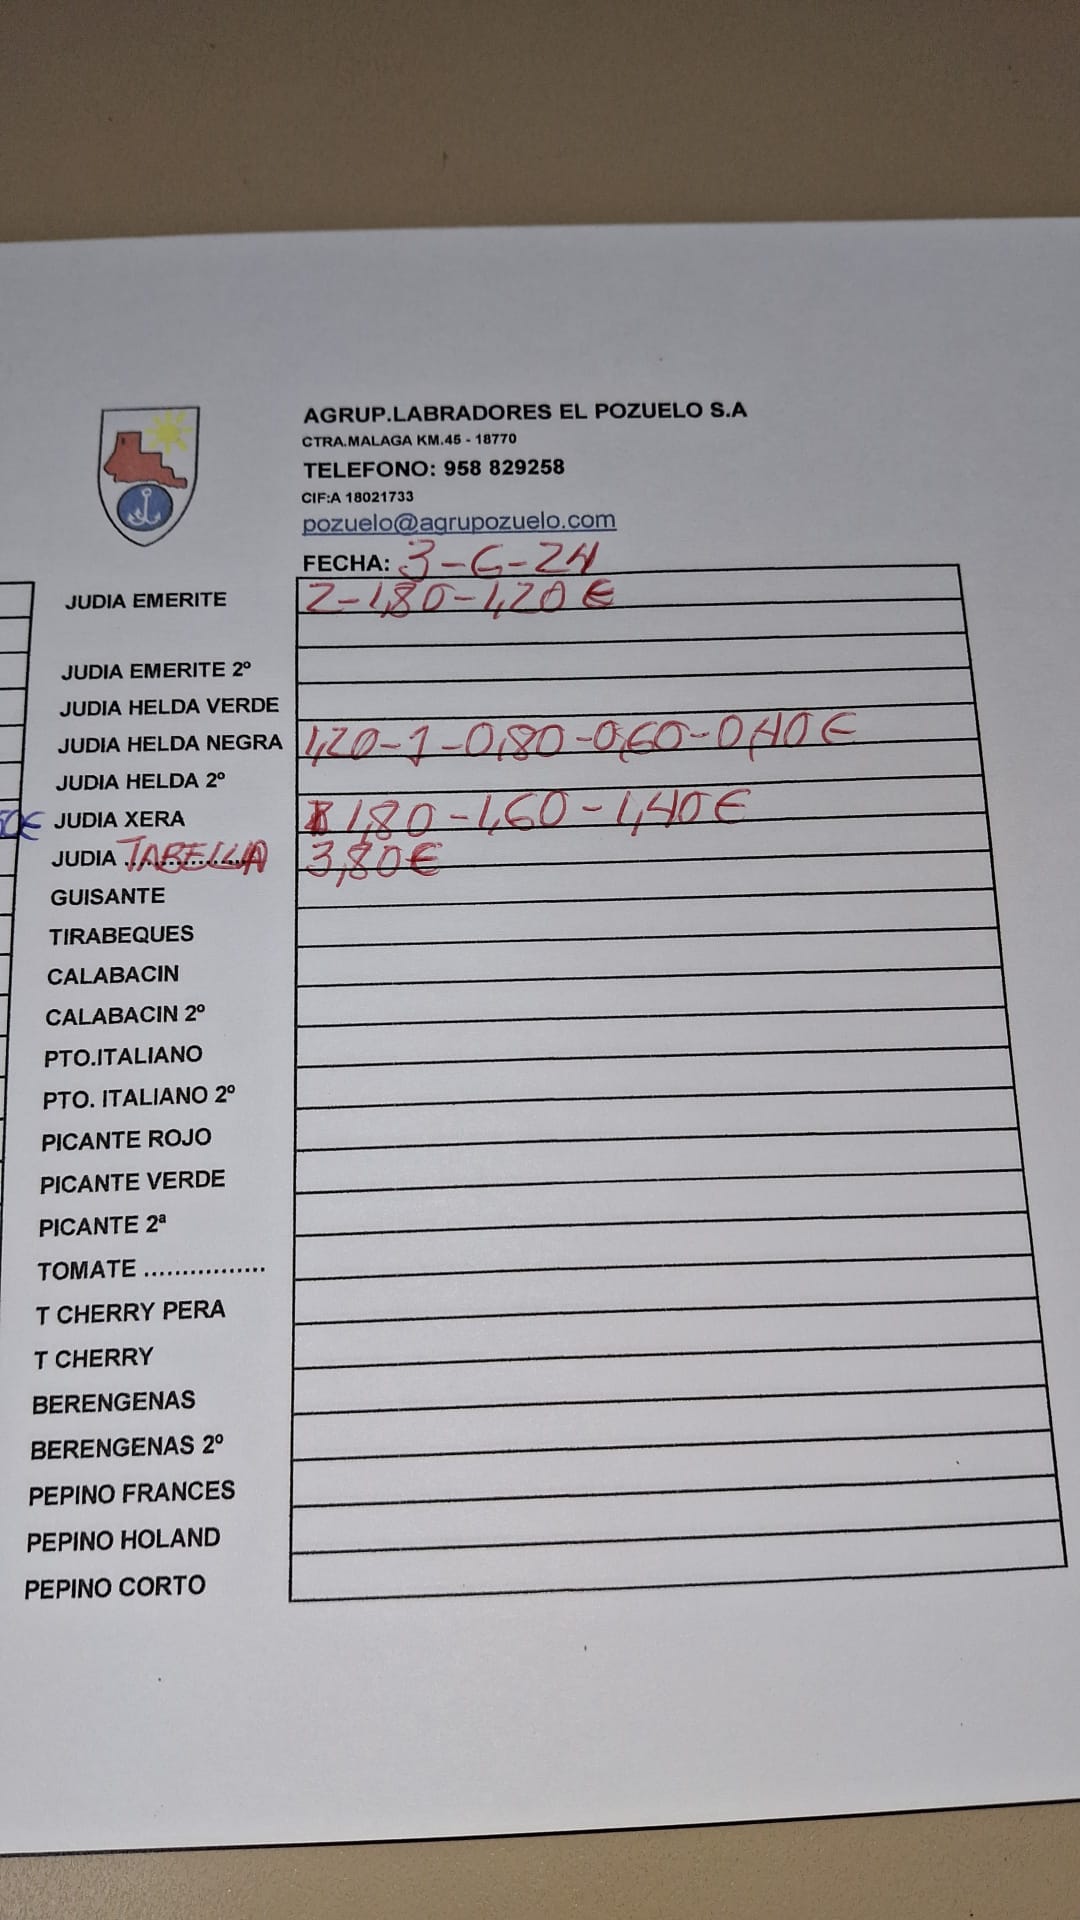 AGRUP.LABRADORES EL POZUELO S.A
CTRA.MALAGA KM.45 - 18770
TELEFONO: 958 829258
CIF:A 18021733
pozuelo@agrupozuelo.com
FECHA: 3-6-24
JUDIA EMERITE 2-1,80-1,20€
JUDIA EMERITE 2º
JUDIA HELDA VERDE
JUDIA HELDA NEGRA 1,20-1-0,80-0,60-0,40€
JUDIA HELDA 2º
JUDIA XERA 1,80-1,60-1,40€
JUDIA TABELLA 3,80€
GUISANTE
TIRABEQUES
CALABACIN
CALABACIN 2º
PTO.ITALIANO
PTO. ITALIANO 2º
PICANTE ROJO
PICANTE VERDE
PICANTE 2ª
TOMATE ................
T CHERRY PERA
T CHERRY
BERENGENAS
BERENGENAS 2º
PEPINO FRANCES
PEPINO HOLAND
PEPINO CORTO